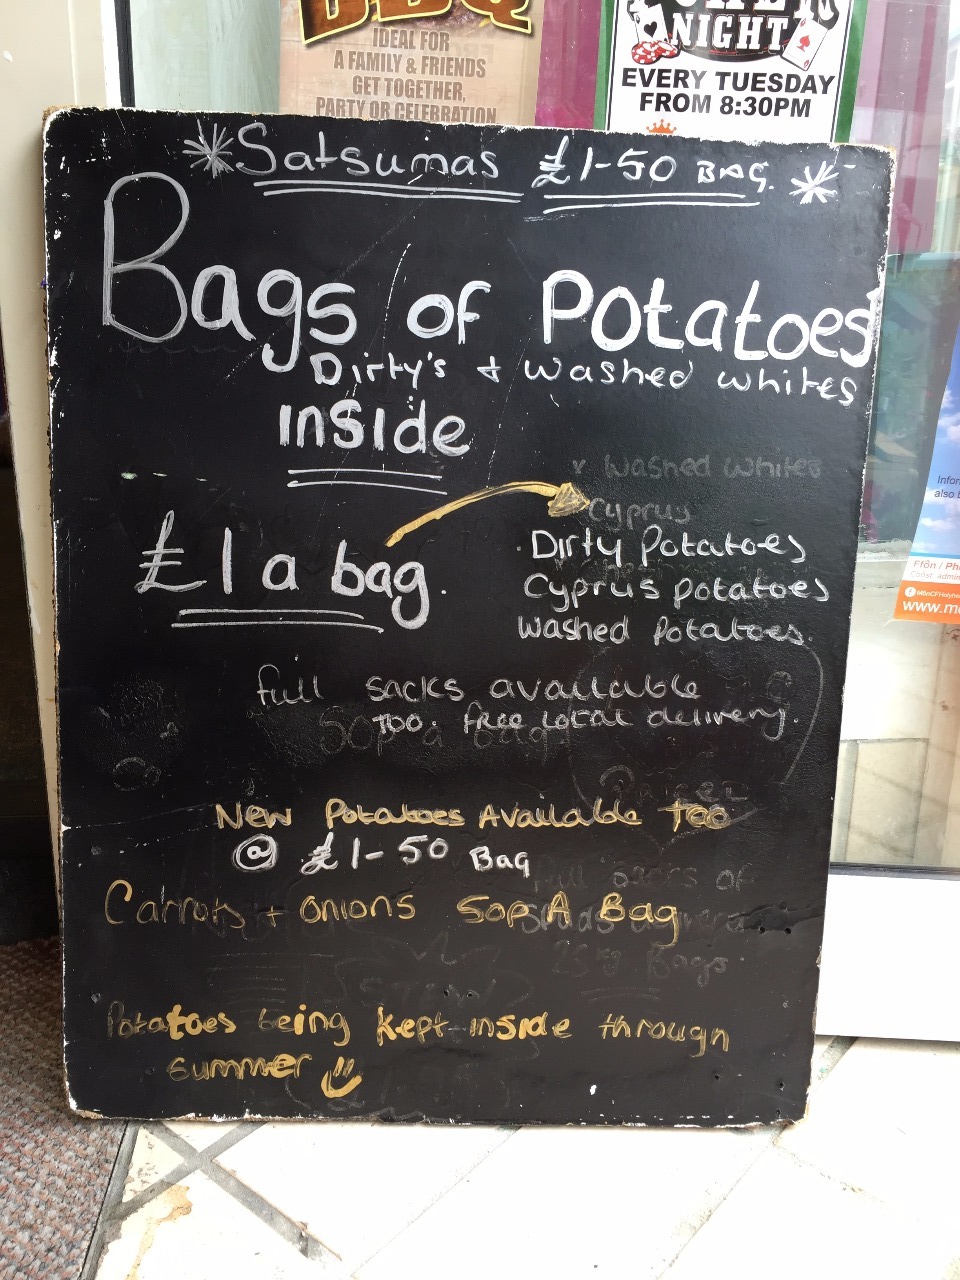 BBQ
IDEAL FOR
A FAMILY & FRIENDS
GET TOGETHER,
PARTY OR CELEBRATION
NIGHT
EVERY TUESDAY
FROM 8:30PM
Satsumas £1-50 BAG.
Bags of Potatoes
Dirty's + washed whites
inside
washed whites
Cyprus
£1 a bag.
Dirty potatoes
Cyprus potatoes
washed potatoes.
full sacks available
TOO. free local delivery.
50p a bag
New Potatoes Available Too
@ £1-50 Bag
full sacks of
Carrots + onions 50p A Bag
25kg Bags
Potatoes being kept inside through
summer
Infor
also b
Ffôn / Ph
www.m